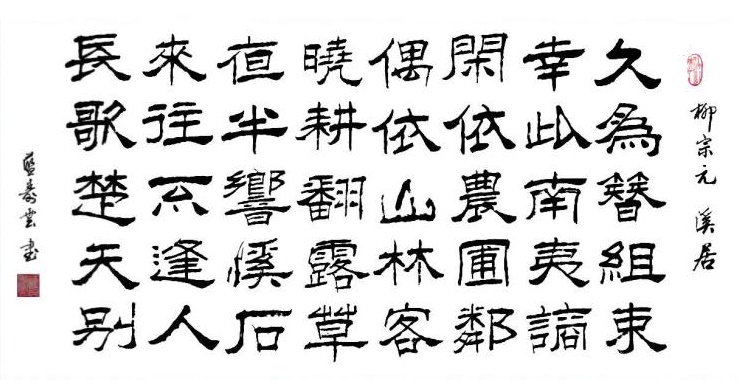 柳宗元 溪居
久為簪組束
幸此南夷謫
閑依農圃鄰
偶依山林客
曉耕翻露草
亱半響溪石
來往不逢人
長歌楚天别
藍壽雲書